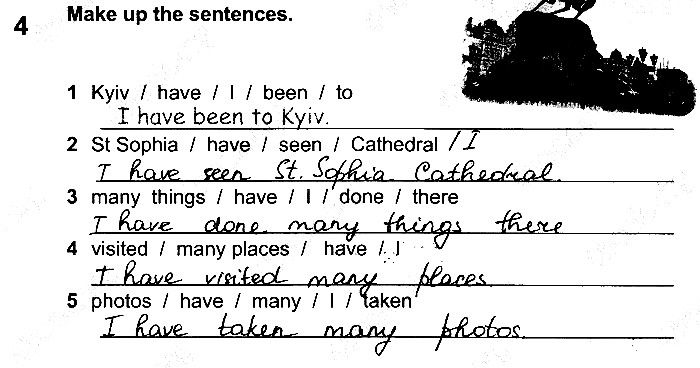 4 Make up the sentences.
1 Kyiv / have / I / been / to
I have been to Kyiv.
2 St Sophia / have / seen / Cathedral / I
I have seen St. Sophia Cathedral.
3 many things / have / I / done / there
I have done many things there
4 visited / many places / have / I
I have visited many places.
5 photos / have / many / I / taken
I have taken many photos.